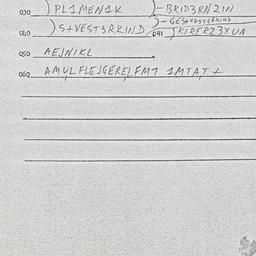 030 ) PL1MEN1K )-BRID3RN2IN
)-GES+VESTERKIND
040 ) S+VEST3RKIND 041 ) KIRFRZ3XUN
050 AEJNIKL
060 AMUL FLEJGEREJ FMT 1MTAT +